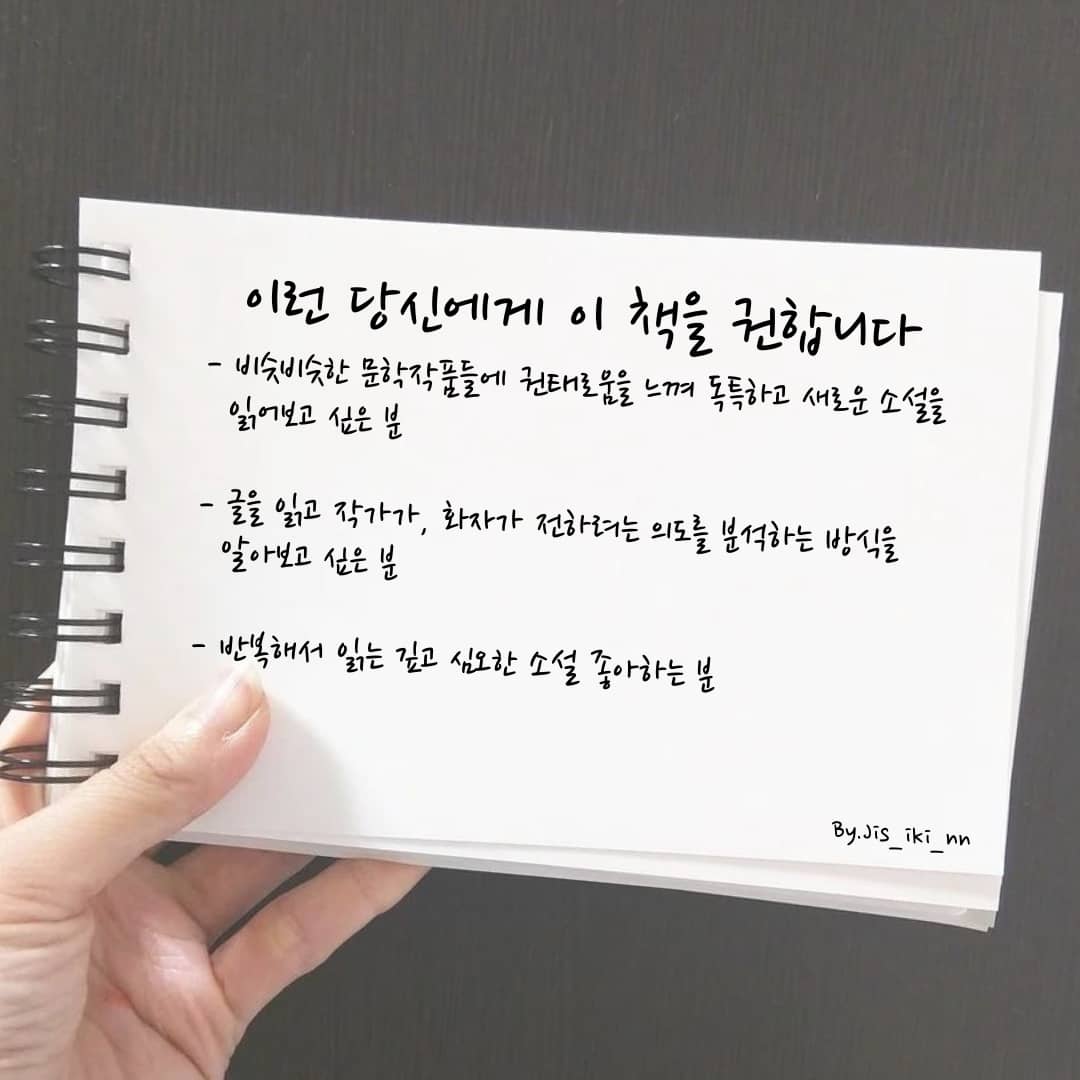 이런 당신에게 이 책을 권합니다
- 비슷비슷한 문학작품들에 권태로움을 느껴 독특하고 새로운 소설을
읽어보고 싶은 분
- 글을 읽고 작가가, 화자가 전하려는 의도를 분석하는 방식을
알아보고 싶은 분
- 반복해서 읽는 깊고 심오한 소설 좋아하는 분
By.Jis_iki_nn